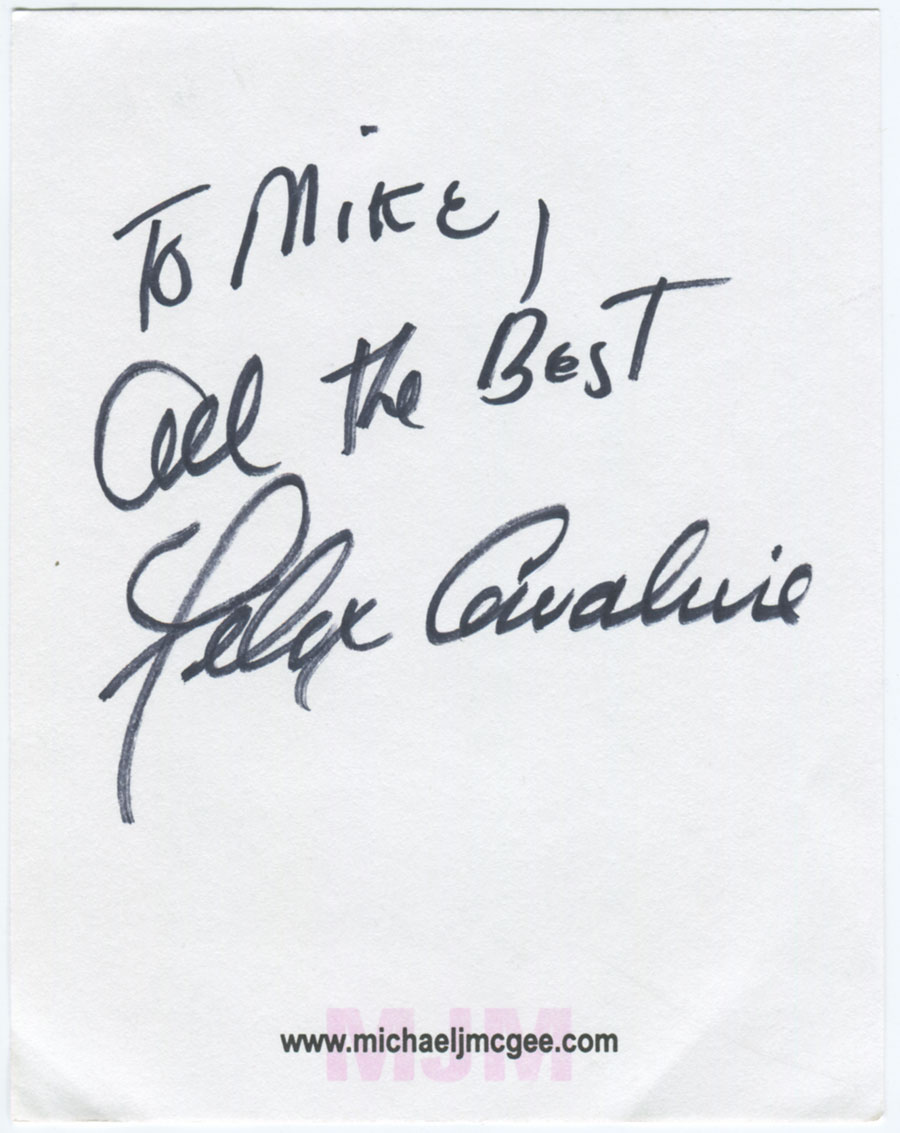 To Mike,
All the Best
Felix Cavaliere
www.michaeljmcgee.com
MJM